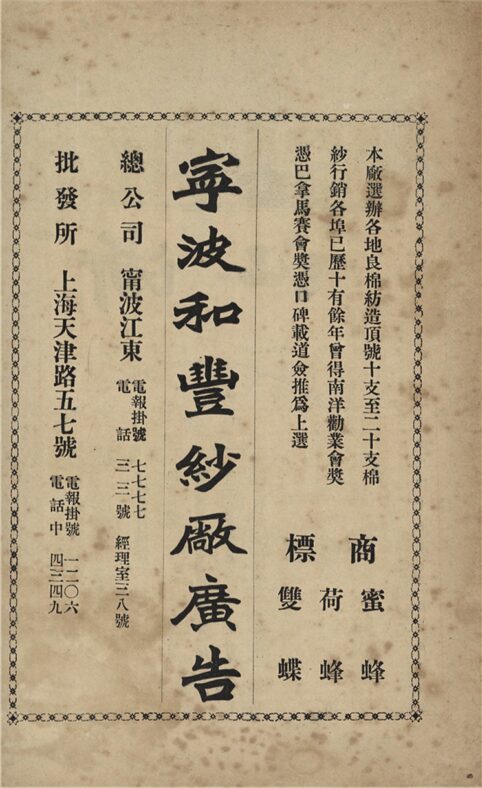 本廠選辦各地良棉紡造頂號十支至二十支棉
紗行銷各埠已歷十有餘年曾得南洋勸業會獎
憑巴拿馬賽會獎憑口碑載道僉推爲上選
商標
蜜蜂
荷蜂
雙蝶
寜波和豐紗厰廣告
總公司 甯波江東
電報掛號 七七七七
電話 三三號 經理室三八號
批發所 上海天津路五七號
電報掛號 一二〇六
電話中 四三四九